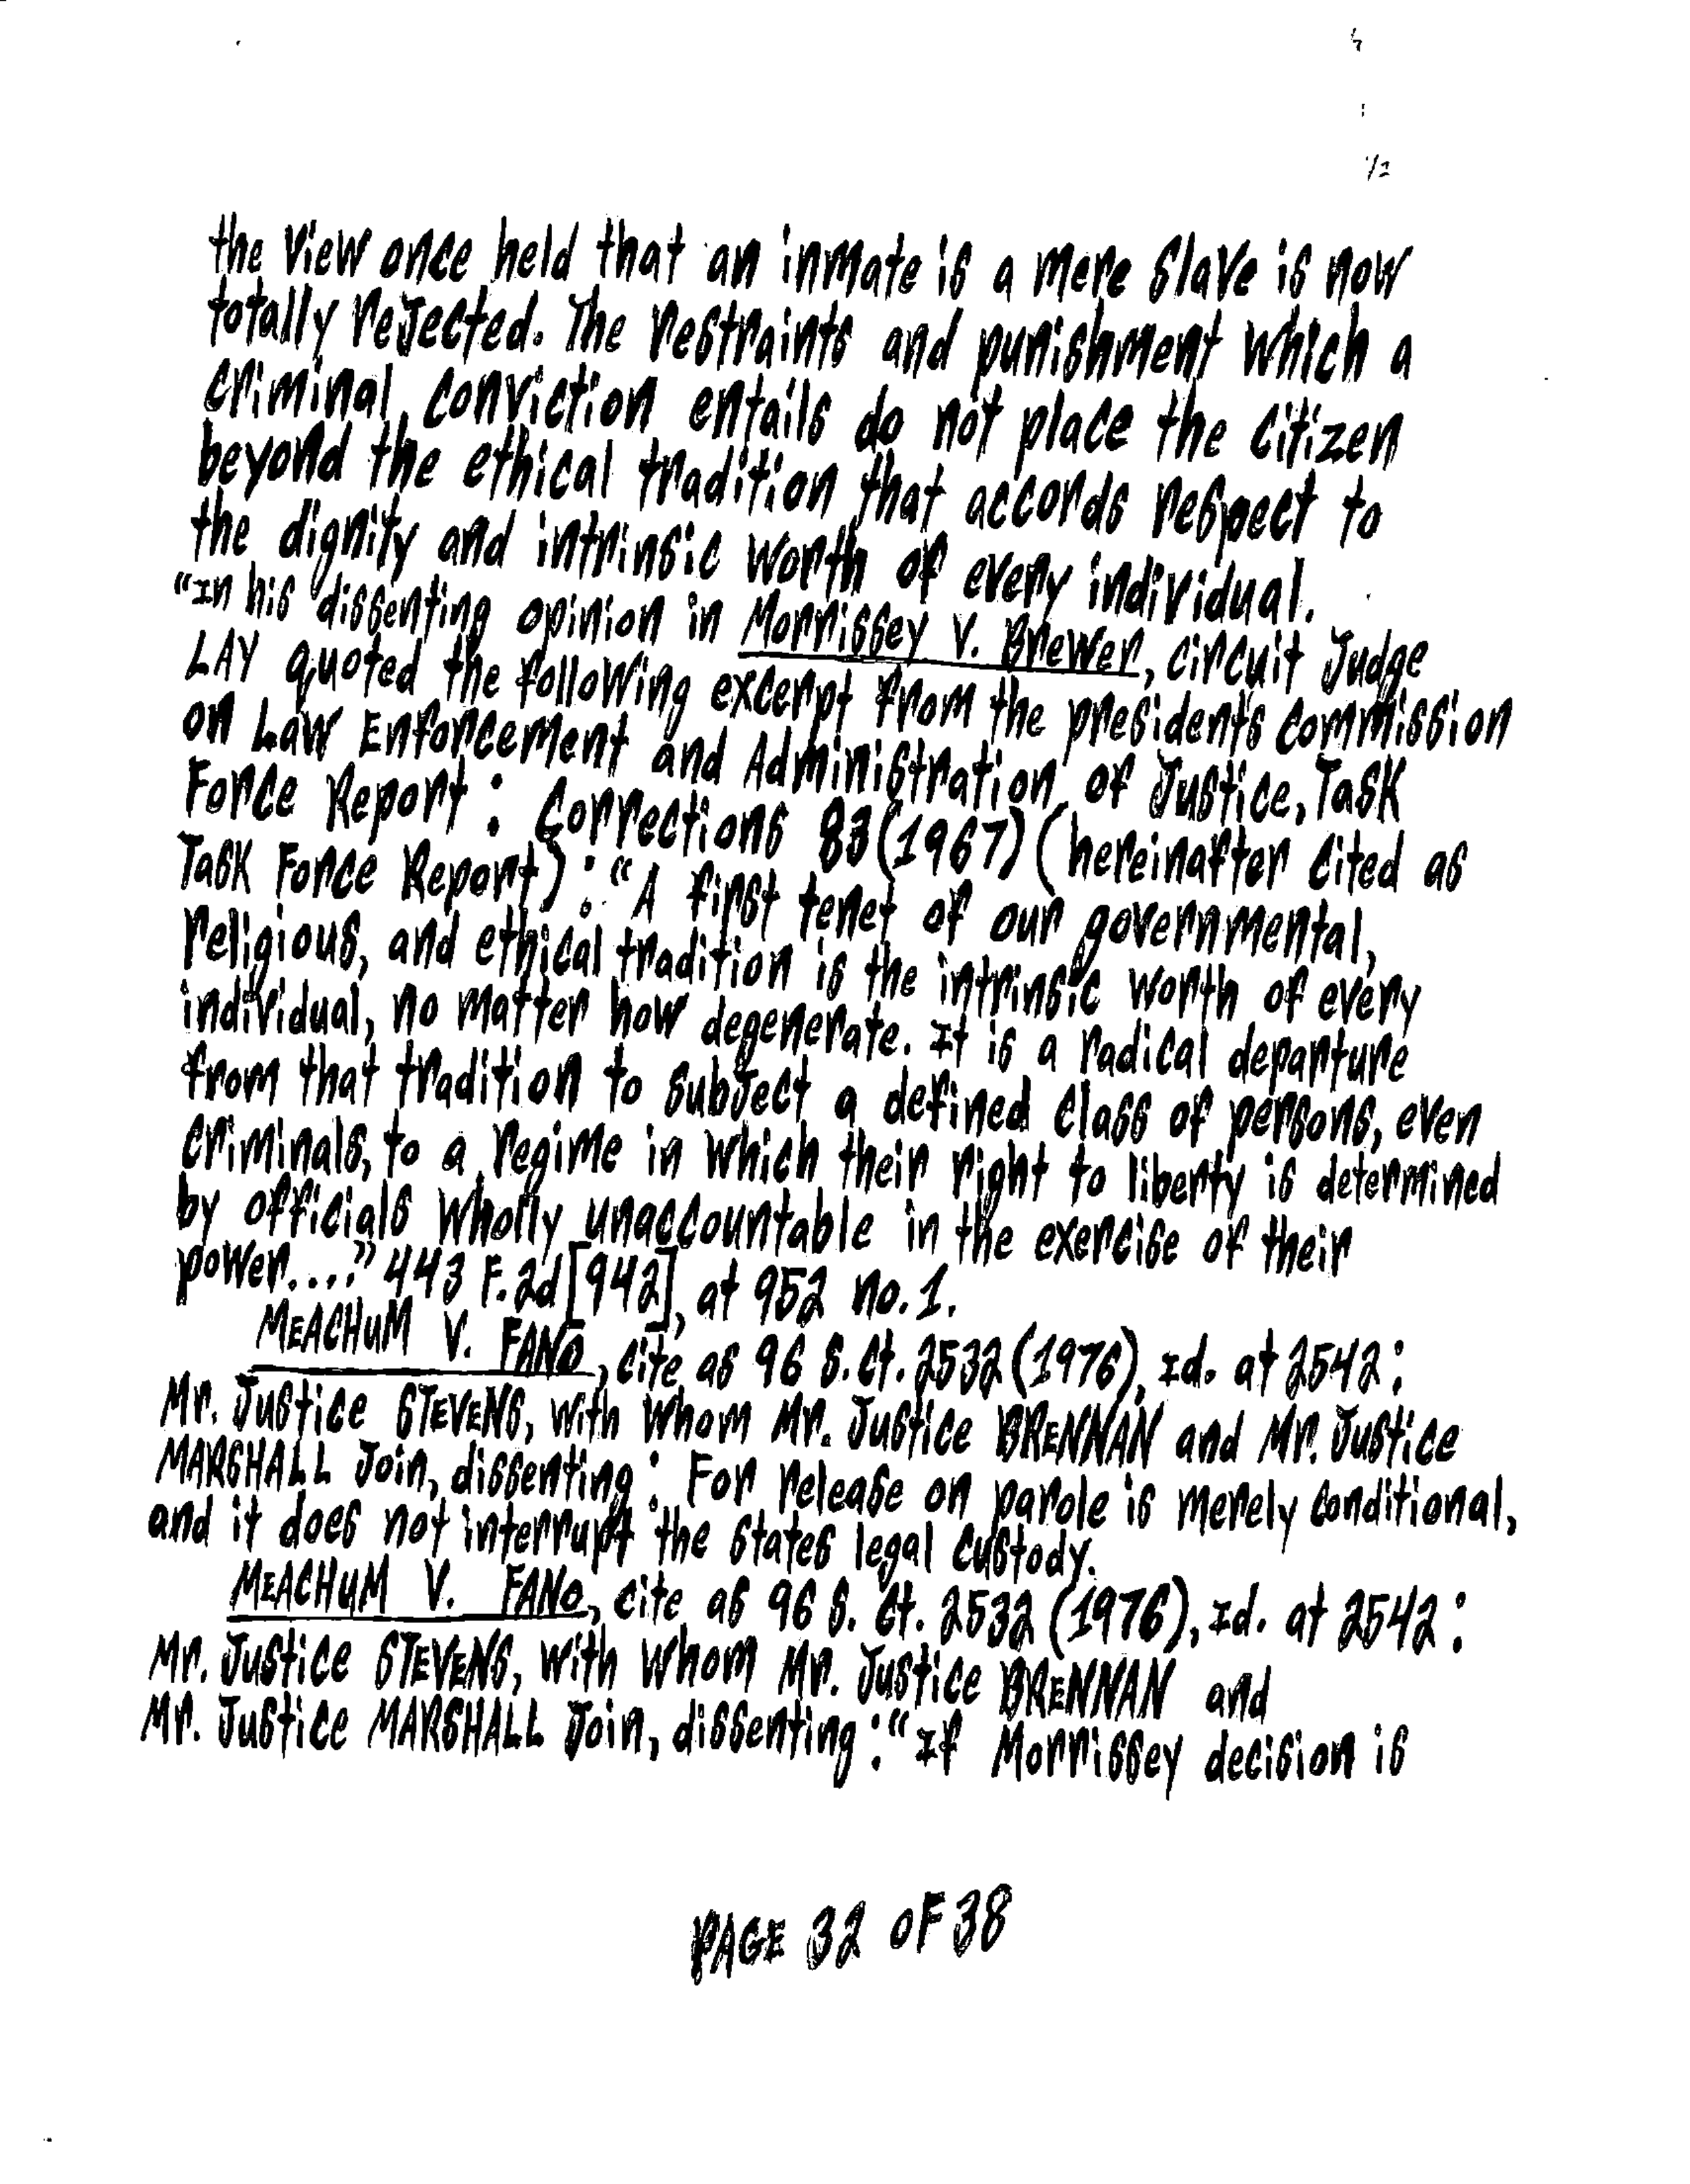 the view once held that an inmate is a mere slave is now
totally rejected. The restraints and punishment which a
criminal conviction entails do not place the citizen
beyond the ethical tradition that accords respect to
the dignity and intrinsic worth of every individual.
"In his dissenting opinion in Morrissey v. Brewer, circuit Judge
LAY quoted the following excerpt from the presidents commission
on Law Enforcement and Administration of Justice, Task
Force Report: Corrections 83 (1967) (hereinafter cited as
Task Force Report): "A first tenet of our governmental,
religious, and ethical tradition is the intrinsic worth of every
individual, no matter how degenerate. It is a radical departure
from that tradition to subject a defined class of persons, even
criminals, to a regime in which their right to liberty is determined
by officials wholly unaccountable in the exercise of their
power...." 443 F.2d [942], at 952 no. 1.
MEACHUM V. FANO, cite as 96 S. Ct. 2532 (1976), Id. at 2542:
Mr. Justice STEVENS, with whom Mr. Justice BRENNAN and Mr. Justice
MARSHALL Join, dissenting: For release on parole is merely conditional,
and it does not interrupt the states legal custody.
MEACHUM V. FANO, cite as 96 S. Ct. 2532 (1976), Id. at 2542:
Mr. Justice STEVENS, with whom Mr. Justice BRENNAN and
Mr. Justice MARSHALL Join, dissenting: "If Morrissey decision is
PAGE 32 OF 38